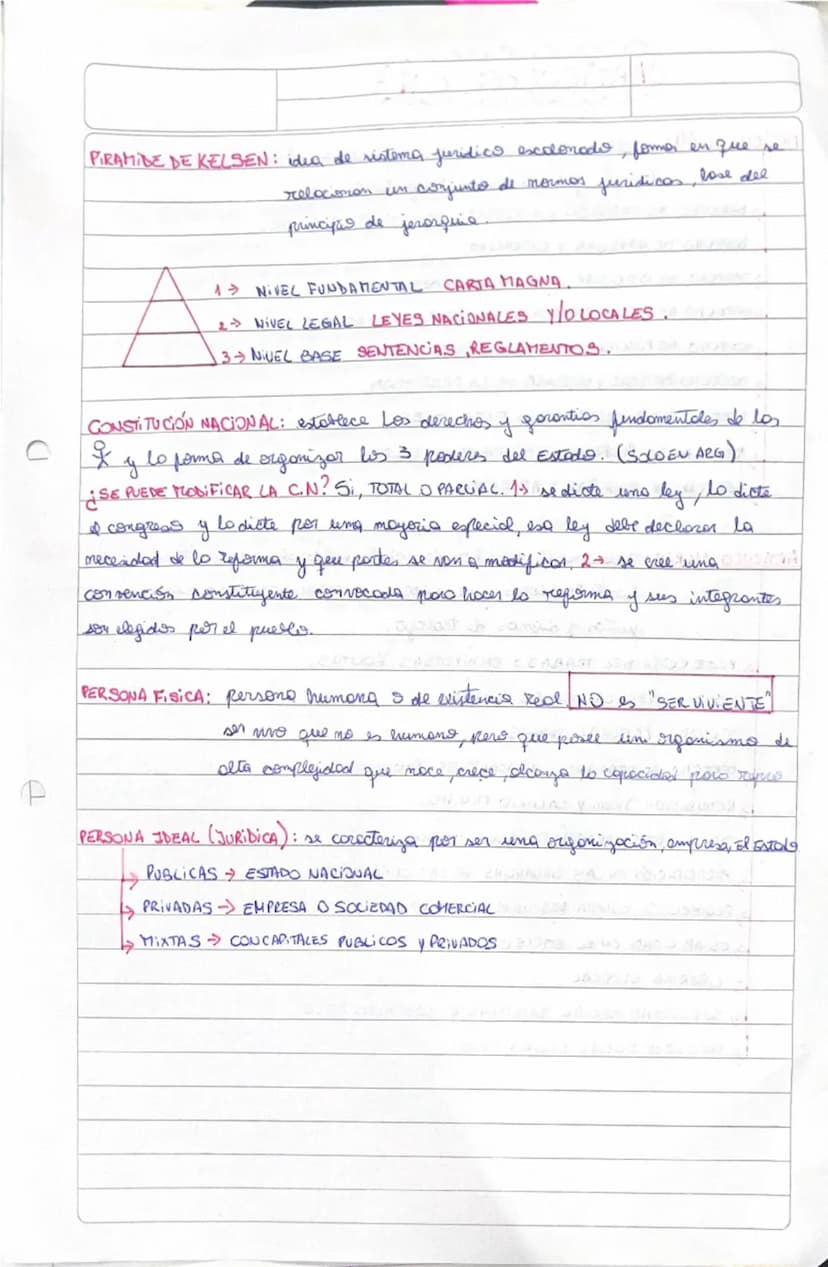 PIRAMIDE DE KELSEN: idea de sistema juridico escalonado, forma en que se
relacionan un conjunto de normas juridicas, base del
principio de jerarquia.
1→ NIVEL FUNDAMENTAL CARTA MAGNA.
2→ NIVEL LEGAL LEYES NACIONALES Y/O LOCALES.
3→ NIVEL BASE SENTENCIAS, REGLAMENTOS.
CONSTITUCIÓN NACIONAL: establece los derechos y garantias fundamentales de las
y la forma de organizar los 3 poderes del Estado. (SOLO EN ARG)
¿SE PUEDE MODIFICAR LA C.N? Si, TOTAL O PARCIAL. 1→ se dicte una ley, lo dicta
el congreso y la dicta por una mayoria especial, esa ley debe declarar la
necesidad de la reforma y que partes se van a modificar. 2→ se cree una
convención constituyente convocada para hacer la reforma y sus integrantes
son elegidos por el pueblo.
PERSONA FISICA: persona humana o de existencia real. NO es "SER VIVIENTE"
ser vivo que no es humano, pero que posee un organismo de
alta complejidad que nace, crece, alcanza la capacidad para
PERSONA IDEAL (JURIDICA): se caracteriza por ser una organización, empresa, El Estado
↳ PUBLICAS → ESTADO NACIONAL
↳ PRIVADAS → EMPRESA O SOCIEDAD COMERCIAL
↳ MIXTAS → CON CAPITALES PUBLICOS Y PRIVADOS